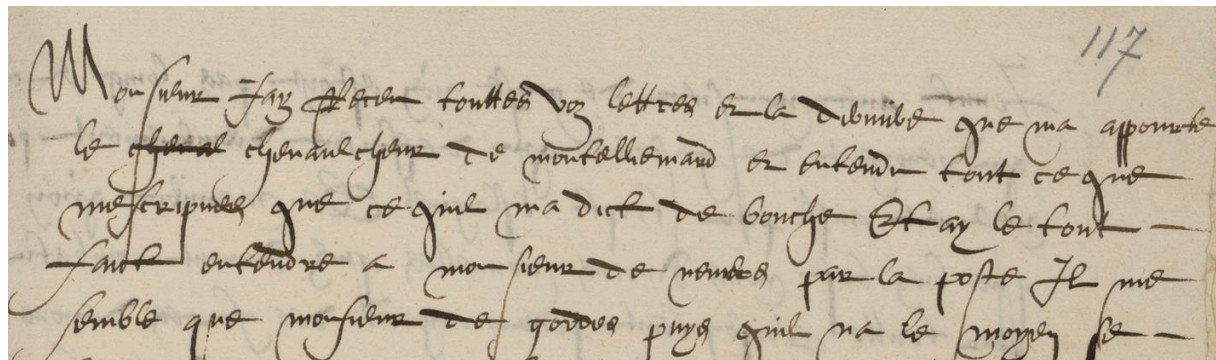 117
Monsieur Jay Receu touttes voz lettres et la derniere que ma apporte
le cheval chevaulcheur de montelliemard et entendu tout ce que
mescripves que ce quil ma dict de bouche Et ay le tout
faict entendre a monsieur de nemours par la poste Il me
semble que monsieur de gordes puys quil na le moyen se